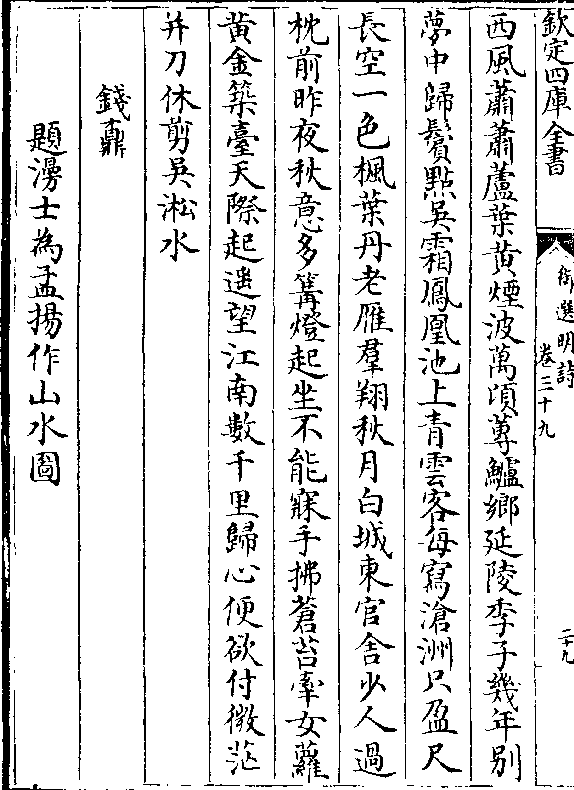 欽定四庫全書
御選明詩
卷三十九
二十九
西風蕭蕭蘆葉黄煙波萬頃蓴鱸鄉延陵季子幾年别
夢中歸鬢點吳霜鳳凰池上青雲客每寫滄洲只盈尺
長空一色楓葉丹老雁羣翔秋月白城東官舍少人過
枕前昨夜秋意多篝燈起坐不能寐手拂蒼苔牽女蘿
黄金築臺天際起遥望江南數千里歸心便欲付微茫
并刀休剪吳淞水
錢鼒
題澷士為孟揚作山水圖